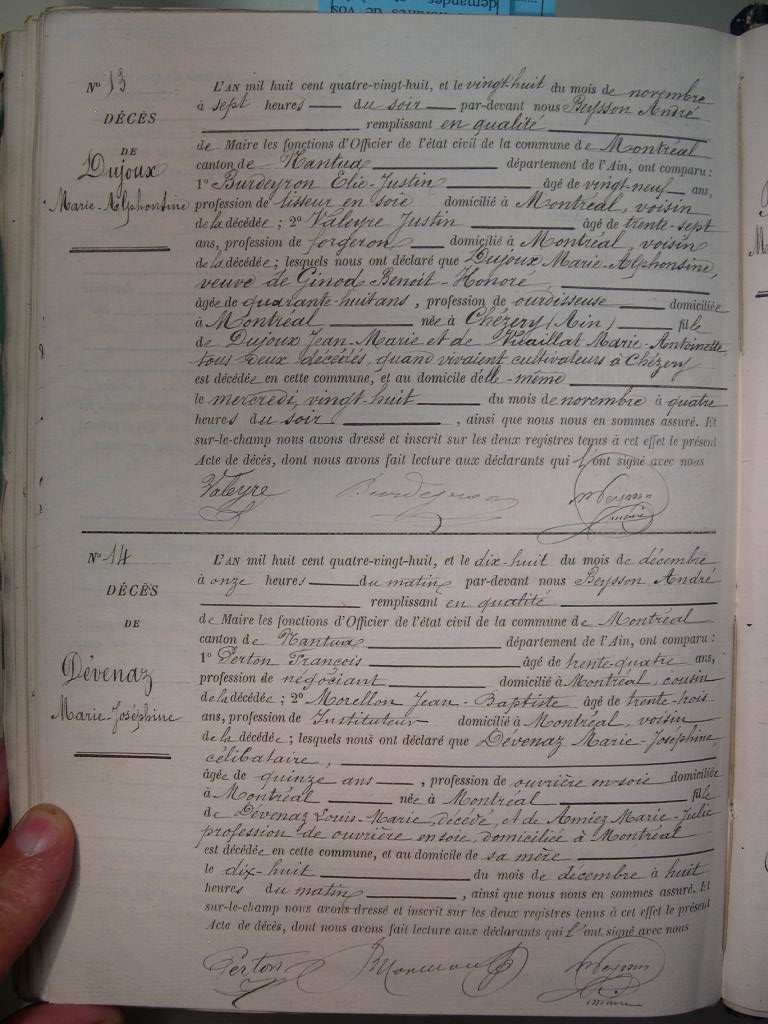 Nº 13
DÉCÈS
DE
Dujoux
Marie-Alphonsine
L'AN mil huit cent quatre-vingt-huit, et le vingt huit du mois de novembre
à sept heures du soir par-devant nous Beysson André
remplissant en qualité
de Maire les fonctions d'Officier de l'état civil de la commune de Montréal
canton de Nantua département de l'Ain, ont comparu :
1º Burdeyron Elie-Justin âgé de vingt-neuf ans,
profession de tisseur en soie domicilié à Montréal, voisin
de la décédée ; 2º Valeyre Justin âgé de trente-sept
ans, profession de forgeron domicilié à Montréal, voisin
de la décédée ; lesquels nous ont déclaré que Dujoux Marie-Alphonsine,
veuve de Ginod Benoit-Honoré,
âgée de quarante-huit ans, profession de ourdisseuse domiciliée
à Montréal née à Chézery (Ain) fille
de Dujoux Jean-Marie et de Vuaillat Marie-Antoinette
tous deux décédés, quand vivaient cultivateurs à Chézery
est décédée en cette commune, et au domicile d'elle-même
le mercredi, vingt-huit du mois de novembre à quatre
heures du soir, ainsi que nous nous en sommes assuré. Et
sur-le-champ nous avons dressé et inscrit sur les deux registres tenus à cet effet le présent
Acte de décès, dont nous avons fait lecture aux déclarants qui l'ont signé avec nous
Valeyre Burdeyron Beysson
maire
Nº 14
DÉCÈS
DE
Dévenaz
Marie-Joséphine
L'AN mil huit cent quatre-vingt-huit, et le dix-huit du mois de décembre
à onze heures du matin par-devant nous Beysson André
remplissant en qualité
de Maire les fonctions d'Officier de l'état civil de la commune de Montréal
canton de Nantua département de l'Ain, ont comparu :
1º Perton François âgé de trente-quatre ans,
profession de négociant domicilié à Montréal, cousin
de la décédée ; 2º Morellon Jean-Baptiste âgé de trente-trois
ans, profession de Instituteur domicilié à Montréal, voisin
de la décédée ; lesquels nous ont déclaré que Dévenaz Marie-Joséphine,
célibataire,
âgée de quinze ans, profession de ouvrière en soie domiciliée
à Montréal née à Montréal fille
de Dévenaz Louis-Marie, décédé, et de Amiez Marie-Julie
profession de ouvrière en soie, domiciliée à Montréal
est décédée en cette commune, et au domicile de sa mère
le dix-huit du mois de décembre à huit
heures du matin, ainsi que nous nous en sommes assuré. Et
sur-le-champ nous avons dressé et inscrit sur les deux registres tenus à cet effet le présent
Acte de décès, dont nous avons fait lecture aux déclarants qui l'ont signé avec nous
Perton Beysson
maire